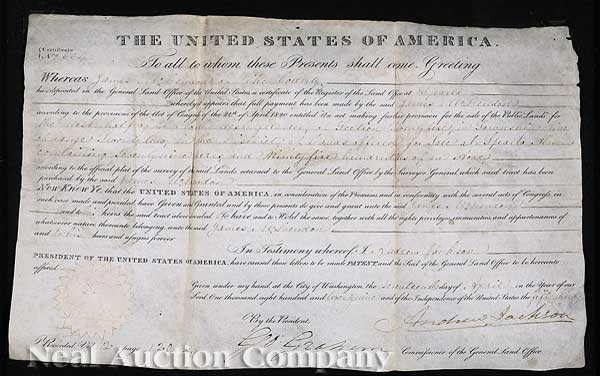 {Certificate
No.
THE UNITED STATES OF AMERICA.
To all to whom these Presents shall come, Greeting
Whereas James McLendon
has deposited in the General Land Office of the United States, a certificate of the Register of the Land Office at Sparta
whereby it appears that full payment has been made by the said James McLendon
according to the provisions of the act of Congress of the 24th of April 1820 entitled "An act making further provision for the sale of the Public Lands" for
the West half of the Section
Range in the District of Lands offered for sale at Sparta
containing and Ninety five hundredths of an acre
according to the official plat of the survey of the said Lands returned to the General Land Office by the Surveyor General which said tract has been
purchased by the said James McLendon
Now Know Ye, that the UNITED STATES OF AMERICA, in consideration of the Premises and in conformity with the several acts of Congress, in
such case made and provided have Given and Granted and by these presents do give and grant unto the said James McLendon
and to his heirs the said tract above described To have and to Hold the same, together with all the rights privileges immunities and appurtenances of
whatsoever nature thereunto belonging, unto the said James McLendon
and to his heirs and assigns forever
In Testimony whereof I Andrew Jackson
PRESIDENT OF THE UNITED STATES OF AMERICA, have caused these letters to be made PATENT and the Seal of the General Land Office to be hereunto
affixed
Given under my hand at the City of Washington, the day of April in the Year of our
Lord One thousand eight hundred and and of the Independence of the United States the fifty third
By the President. Andrew Jackson
Geo. Graham Commissioner of the General Land Office
Recorded Vol. 2 page
Neal Auction Company